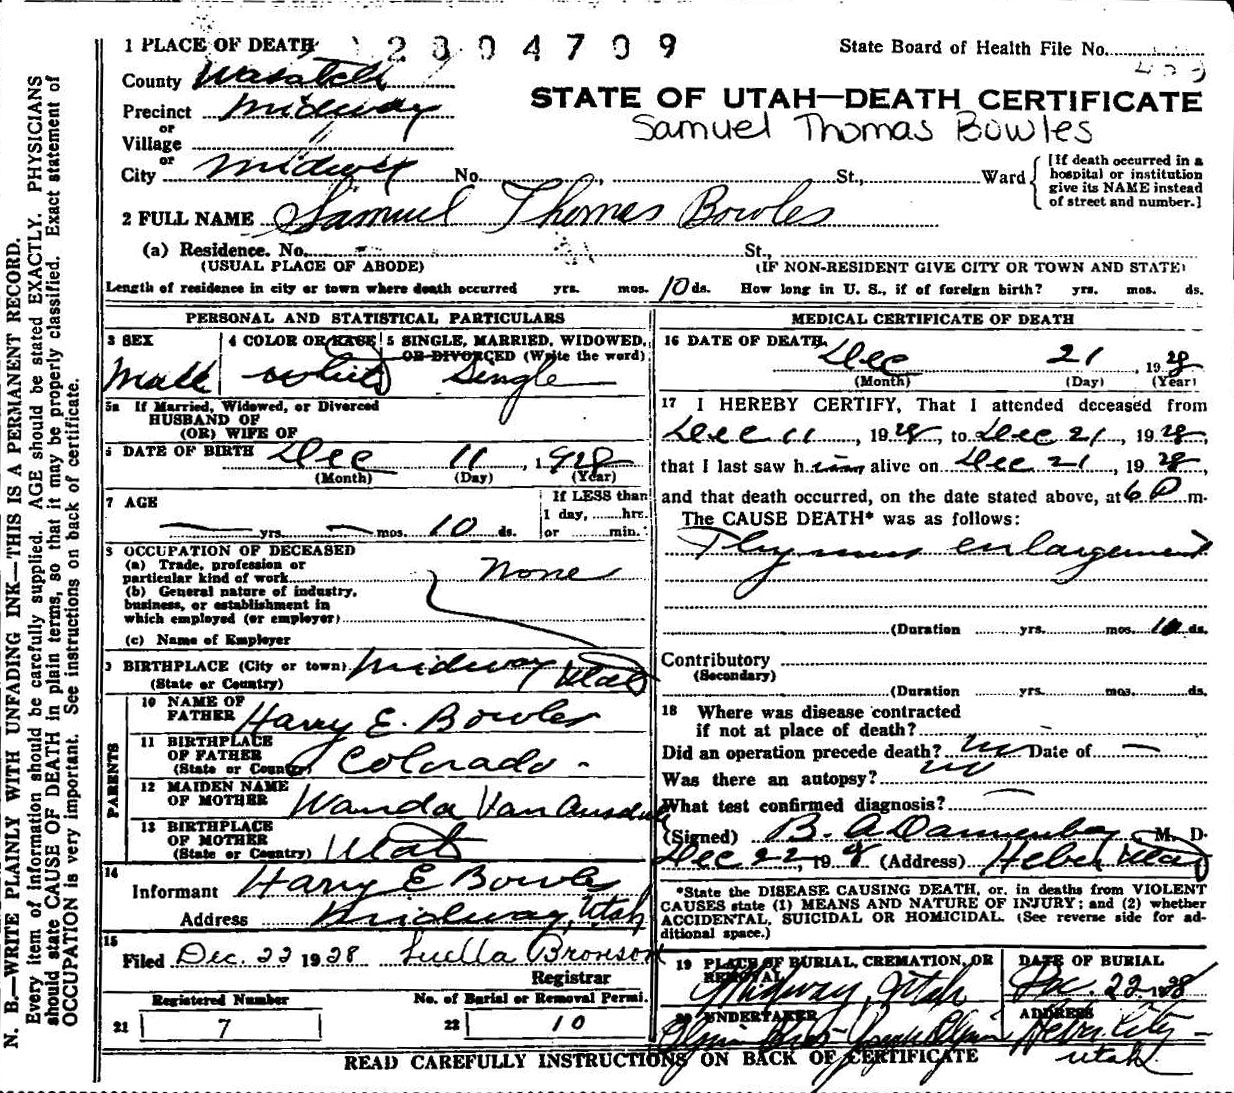 1 PLACE OF DEATH 2804709 State Board of Health File No.
County Wasatch
Precinct Midway
STATE OF UTAH—DEATH CERTIFICATE
or
Samuel Thomas Bowles
Village
or
City Midway No. , St., Ward [If death occurred in a hospital or institution give its NAME instead of street and number.]
2 FULL NAME Samuel Thomas Bowles
(a) Residence. No. St.,
(USUAL PLACE OF ABODE) (IF NON-RESIDENT GIVE CITY OR TOWN AND STATE)
Length of residence in city or town where death occurred yrs. mos. 10 ds. How long in U. S., if of foreign birth? yrs. mos. ds.
PERSONAL AND STATISTICAL PARTICULARS
3 SEX 4 COLOR OR RACE 5 SINGLE, MARRIED, WIDOWED,
OR DIVORCED (Write the word)
Male White Single
5a If Married, Widowed, or Divorced
HUSBAND OF
(OR) WIFE OF
6 DATE OF BIRTH Dec 11, 1928
(Month) (Day) (Year)
7 AGE If LESS than
1 day, hrs.
yrs. mos. 10 ds. or min.
8 OCCUPATION OF DECEASED
(a) Trade, profession or
particular kind of work None
(b) General nature of industry,
business, or establishment in
which employed (or employer)
(c) Name of Employer
9 BIRTHPLACE (City or town) Midway
(State or Country) Utah
PARENTS
10 NAME OF
FATHER Harry E. Bowles
11 BIRTHPLACE
OF FATHER
(State or Country) Colorado
12 MAIDEN NAME
OF MOTHER Wanda Van
13 BIRTHPLACE
OF MOTHER
(State or Country) Utah
14
Informant Harry E Bowles
Address Midway, Utah
15
Filed Dec. 22 1928 Luella Bronson
Registrar
Registered Number No. of Burial or Removal Permi.
21 7 22 10
MEDICAL CERTIFICATE OF DEATH
16 DATE OF DEATH
Dec 21, 1928
(Month) (Day) (Year)
17 I HEREBY CERTIFY, That I attended deceased from
Dec 11, 1928, to Dec 21, 1928,
that I last saw h im alive on Dec 21, 1928,
and that death occurred, on the date stated above, at 6 P m.
The CAUSE DEATH* was as follows:
Thymus enlargement
(Duration yrs. mos. 10 ds.
Contributory
(Secondary)
(Duration yrs. mos. ds.
18 Where was disease contracted
if not at place of death?
Did an operation precede death? no Date of
Was there an autopsy? no
What test confirmed diagnosis?
(Signed) B. A Dannenberg, M. D.
Dec 22, 1928 (Address) Heber Utah
*State the DISEASE CAUSING DEATH, or, in deaths from VIOLENT
CAUSES state (1) MEANS AND NATURE OF INJURY; and (2) whether
ACCIDENTAL, SUICIDAL OR HOMICIDAL. (See reverse side for ad-
ditional space.)
19 PLACE OF BURIAL, CREMATION, OR
REMOVAL
Midway, Utah
DATE OF BURIAL
Dec. 22 1928
20 UNDERTAKER
ADDRESS
Heber City
Utah
READ CAREFULLY INSTRUCTIONS ON BACK OF CERTIFICATE
N. B.—WRITE PLAINLY WITH UNFADING INK—THIS IS A PERMANENT RECORD.
Every item of information should be carefully supplied. AGE should be stated EXACTLY. PHYSICIANS
should state CAUSE OF DEATH in plain terms, so that it may be properly classified. Exact statement of
OCCUPATION is very important. See instructions on back of certificate.